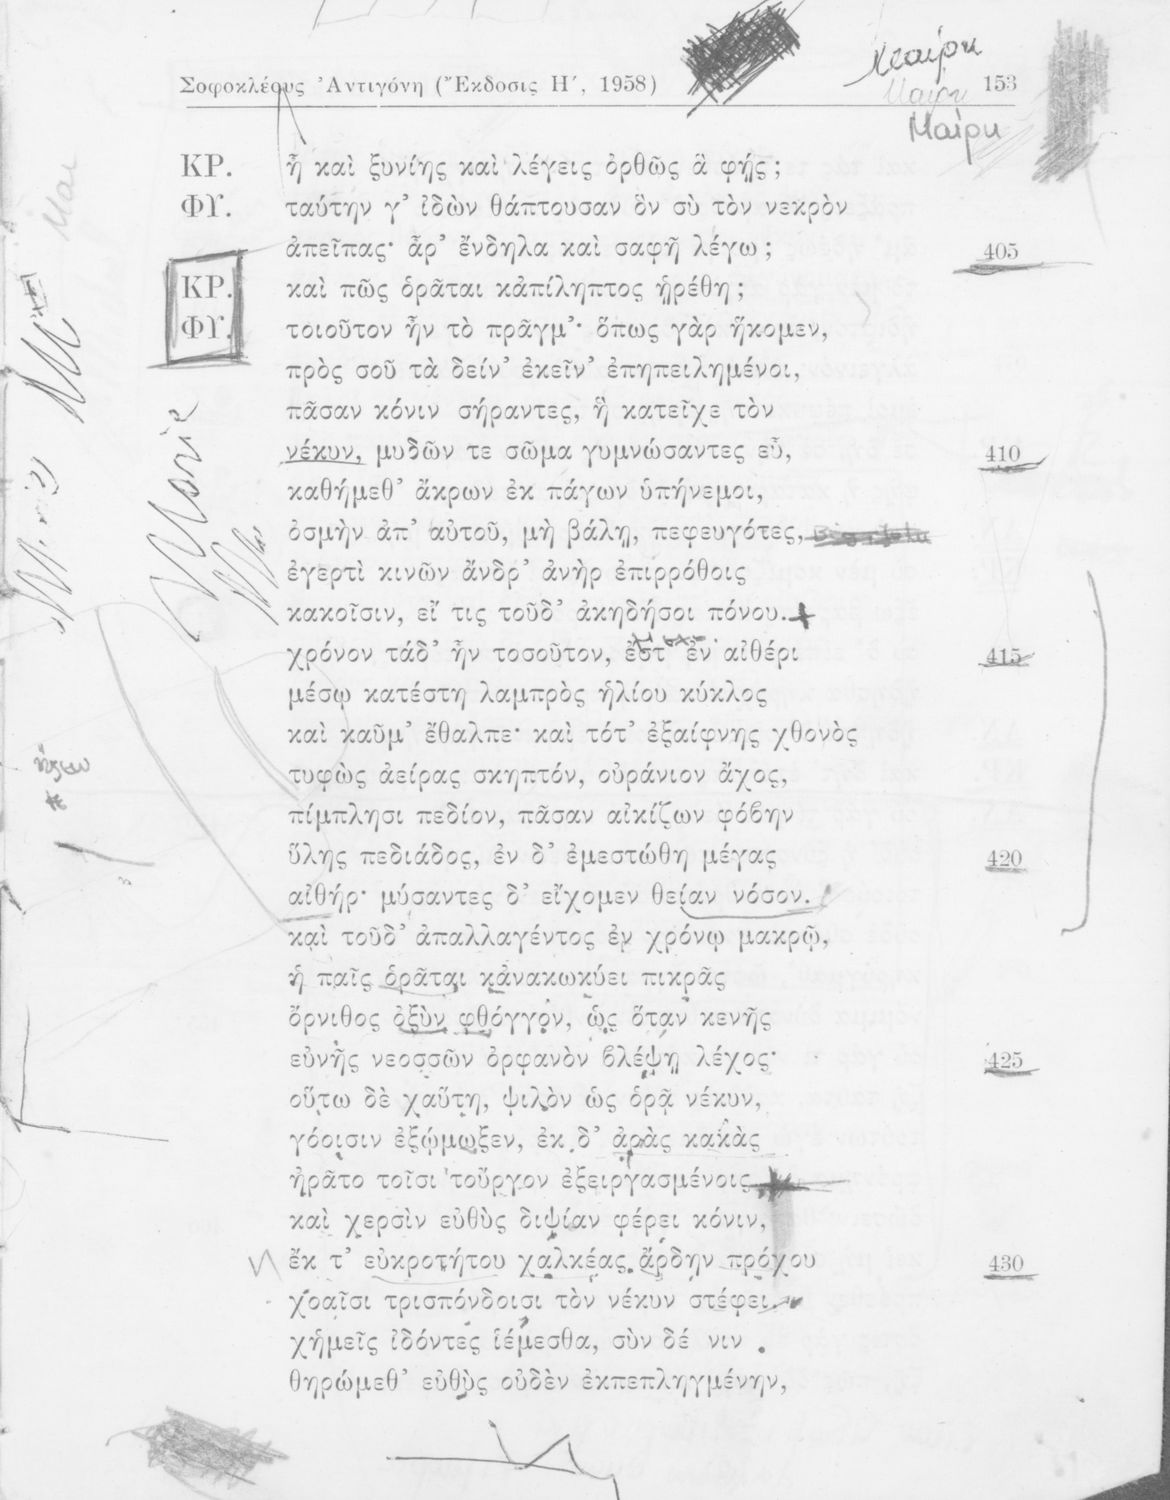 Σοφοκλέους Ἀντιγόνη (Ἔκδοσις Η΄, 1958) 153
Μαίρη
Μαίρη
Μαίρη
ΚΡ. ἦ καὶ ξυνίης καὶ λέγεις ὀρθῶς ἃ φῄς ;
ΦΥ. ταύτην γ’ ἰδὼν θάπτουσαν ὃν σὺ τὸν νεκρὸν
ἀπεῖπας· ἆρ’ ἔνδηλα καὶ σαφῆ λέγω ; 405
ΚΡ. καὶ πῶς ὁρᾶται κἀπίληπτος ᾑρέθη ;
ΦΥ. τοιοῦτον ἦν τὸ πρᾶγμ’· ὅπως γὰρ ἥκομεν,
πρὸς σοῦ τὰ δείν’ ἐκεῖν’ ἐπηπειλημένοι,
πᾶσαν κόνιν σήραντες, ἣ κατεῖχε τὸν
νέκυν, μυδῶν τε σῶμα γυμνώσαντες εὖ, 410
καθήμεθ’ ἄκρων ἐκ πάγων ὑπήνεμοι,
ὀσμὴν ἀπ’ αὐτοῦ, μὴ βάλῃ, πεφευγότες,
ἐγερτὶ κινῶν ἄνδρ’ ἀνὴρ ἐπιρρόθοις
κακοῖσιν, εἴ τις τοῦδ’ ἀκηδήσοι πόνου.
χρόνον τάδ’ ἦν τοσοῦτον, ἔστ’ ἐν αἰθέρι 415
μέσῳ κατέστη λαμπρὸς ἡλίου κύκλος
καὶ καῦμ’ ἔθαλπε· καὶ τότ’ ἐξαίφνης χθονὸς
τυφὼς ἀείρας σκηπτόν, οὐράνιον ἄχος,
πίμπλησι πεδίον, πᾶσαν αἰκίζων φόβην
ὕλης πεδιάδος, ἐν δ’ ἐμεστώθη μέγας 420
αἰθήρ· μύσαντες δ’ εἴχομεν θείαν νόσον.
καὶ τοῦδ’ ἀπαλλαγέντος ἐν χρόνῳ μακρῷ,
ἡ παῖς ὁρᾶται κἀνακωκύει πικρᾶς
ὄρνιθος ὀξὺν φθόγγον, ὡς ὅταν κενῆς
εὐνῆς νεοσσῶν ὀρφανὸν βλέψῃ λέχος· 425
οὕτω δὲ χαὕτη, ψιλὸν ὡς ὁρᾷ νέκυν,
γόοισιν ἐξῴμωξεν, ἐκ δ’ ἀρὰς κακὰς
ἠρᾶτο τοῖσι τοὔργον ἐξειργασμένοις
καὶ χερσὶν εὐθὺς διψίαν φέρει κόνιν,
ἔκ τ’ εὐκροτήτου χαλκέας ἄρδην πρόχου 430
χοαῖσι τρισπόνδοισι τὸν νέκυν στέφει.
χἠμεῖς ἰδόντες ἱέμεσθα, σὺν δέ νιν
θηρώμεθ’ εὐθὺς οὐδὲν ἐκπεπληγμένην,